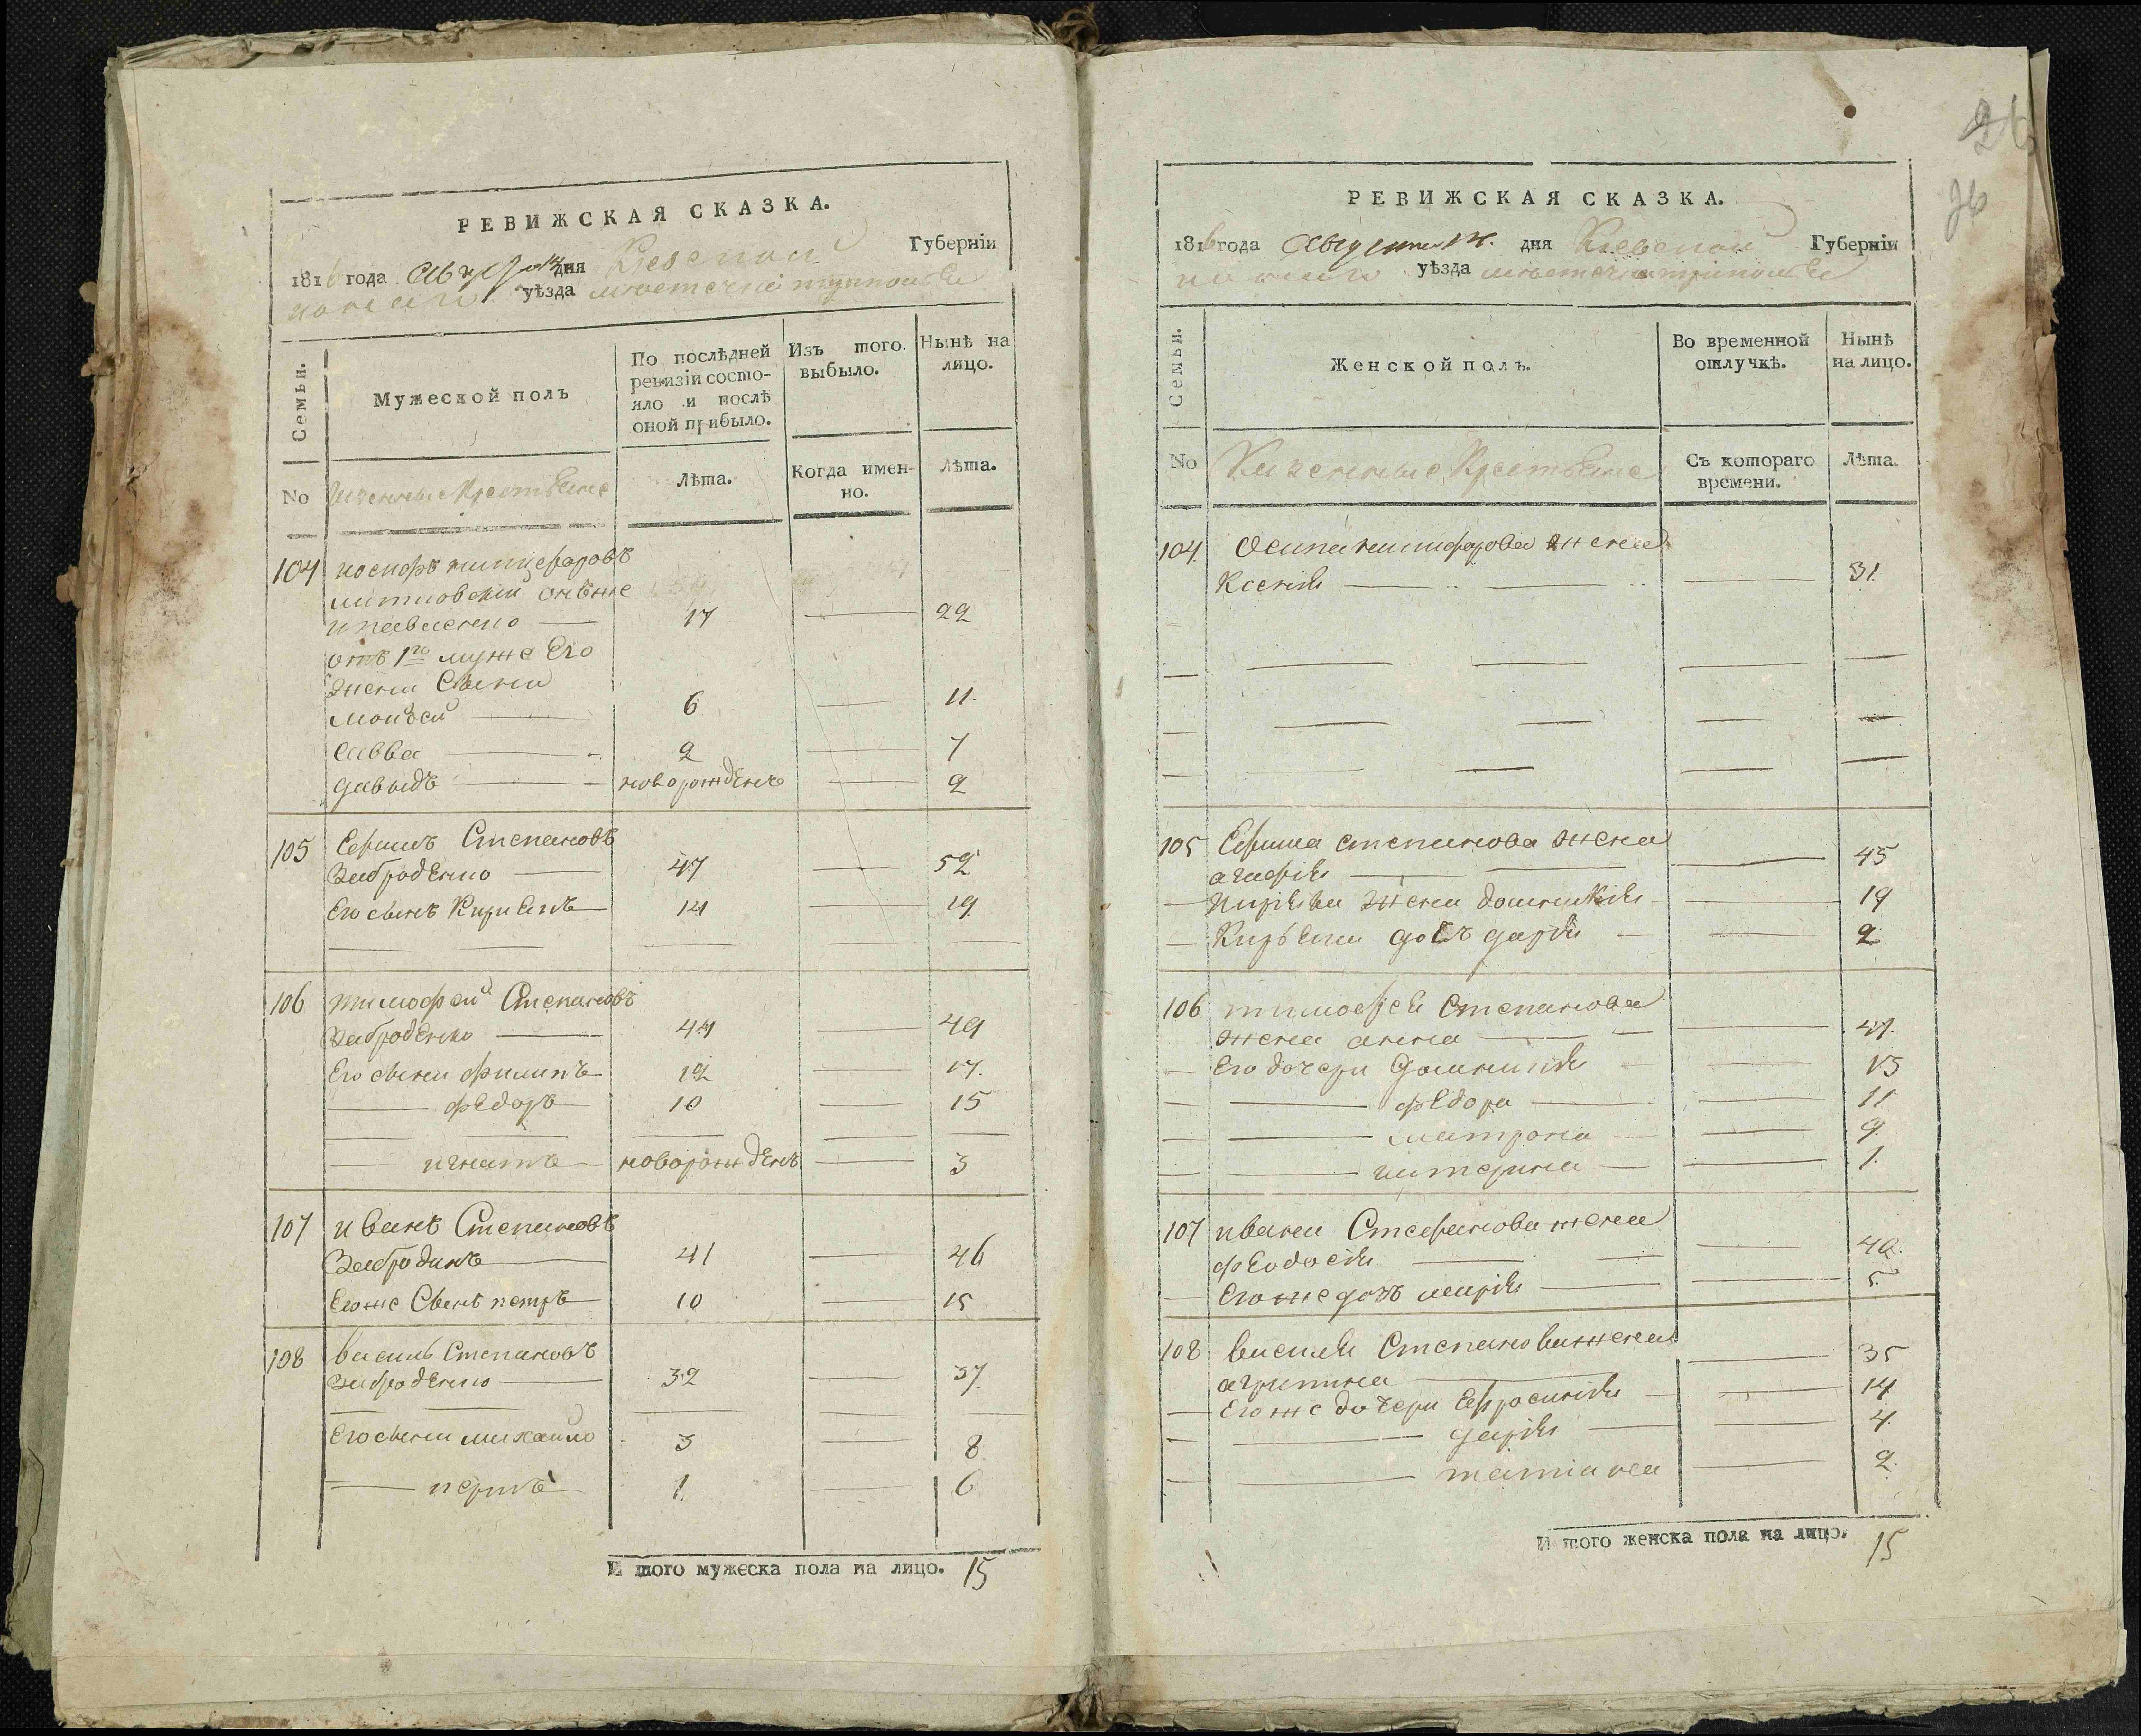 26
26
РЕВИЖСКАЯ СКАЗКА.
1816 года Августа 14 дня Кіевской Губерніи
уѣзда местечка триполья
Семьи.
Мужеской полъ
По послѣдней ревизіи состояло и послѣ оной прибыло.
Изъ того выбыло.
Нынѣ на лицо.
No
казенные Крестьяне
Лѣта.
Когда именно.
Лѣта.
104 иосифъ никифоровъ
онъже
17 22
отъ 1го мужа Его
жены Сыны
моисей 6 11.
савва 2 7
давыдъ новорожденъ 2
105 Ефимъ Степановъ
Забродѣнко 47 52
Его сынъ Кирѣяпъ 14 19.
106 тимофей Степановъ
Забродѣнко 44 49
Его сыны филипъ 12 17.
федоръ 10 15
игнатъ новорожденъ 3
107 иванъ Степановъ
Забродинъ 41 46
Егоже Сынъ петръ 10 15
108 василь Степановъ
Забродѣнко 32 37.
Его сыны михайло 3 8
1. 6
И того мужеска пола на лицо. 15
РЕВИЖСКАЯ СКАЗКА.
1816 года Августа 14. дня Кіевской Губерніи
уѣзда местечка триполья
Семьи.
Женской полъ.
Во временной отлучкѣ.
Нынѣ на лицо.
No
Казенные Крестьяне
Съ котораго времени.
Лѣта.
104. Осипа никифорова жена
Ксенія 31.
105 Ефима степанова жена
агафія 45
жена домникія 19
дочь дарія 2
106 тимофея степанова
жена анна 47.
Его дочери домникія 13
федора 11
матрона 9.
катерина 1.
107 ивана Стефанова жена
феодосія 42.
Егоже дочь марія 5.
108 василя Степанова жена
агрипина 35
Егоже дочери Ефросинія 14.
дарія 4.
татіана 2.
И того женска пола на лицо. 15